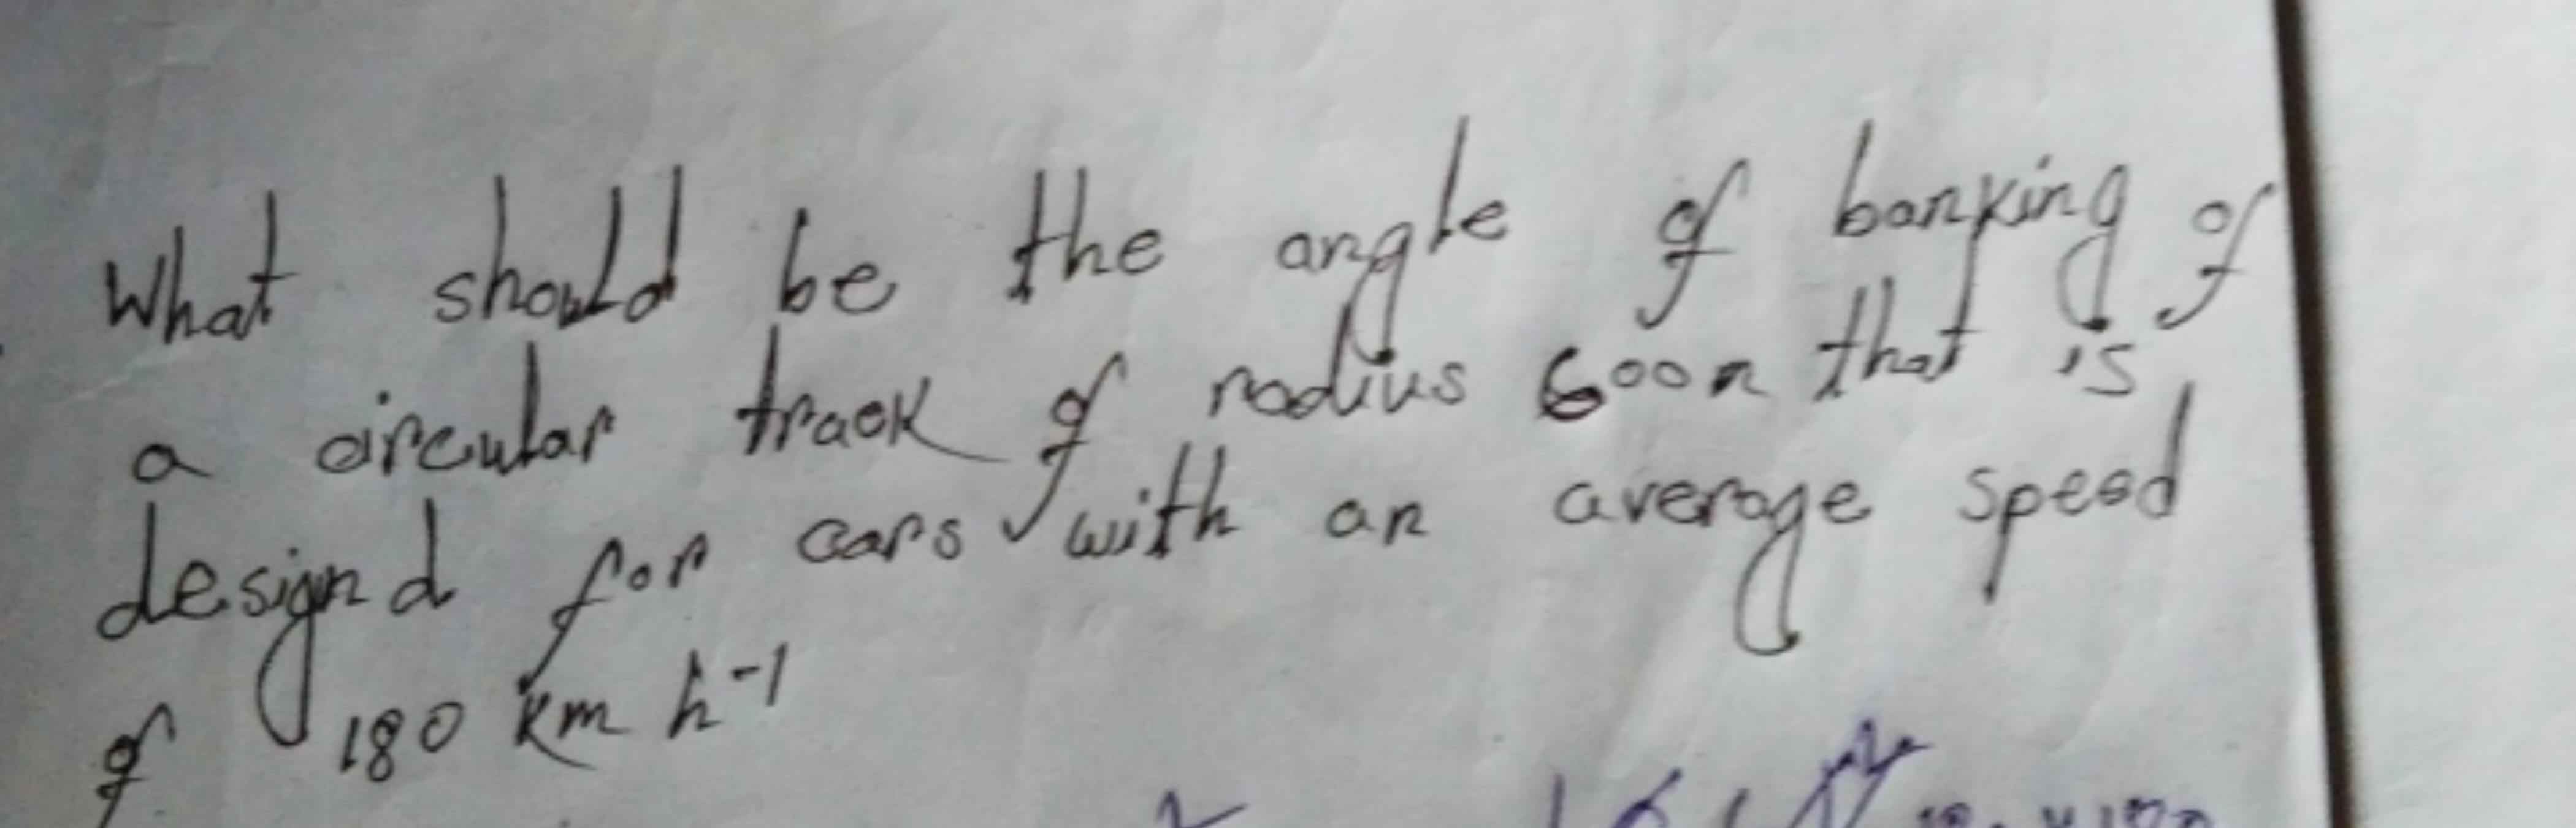 What should be the angle of banking of
a circular track of radius 600m that is
designd for cars with an average speed
of 180 km h⁻¹